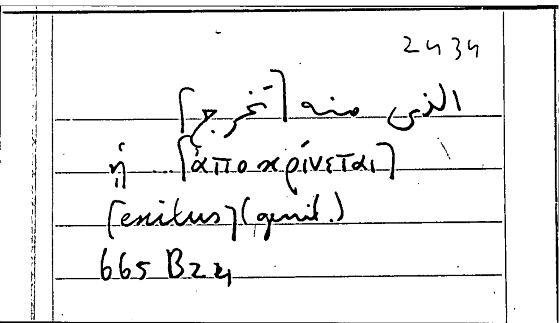 2434
الذى منه [تخرج]
ἡ ... [ἀποκρίνεται]
[exitus] (genit.)
665 B24